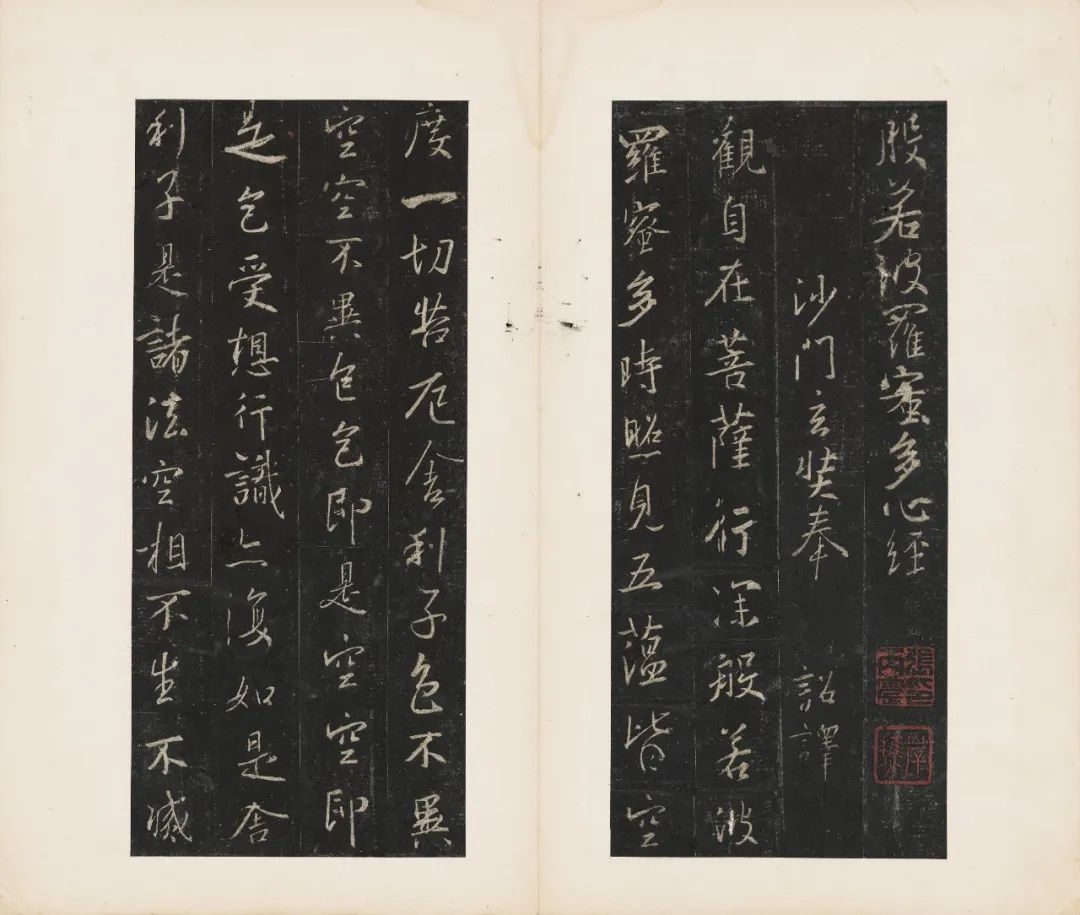 般若波羅蜜多心經
沙門玄奘奉 詔譯
觀自在菩薩行深般若波
羅蜜多時照見五蘊皆空
度一切苦厄舍利子色不異
空空不異色色即是空空即
是色受想行識亦復如是舍
利子是諸法空相不生不滅